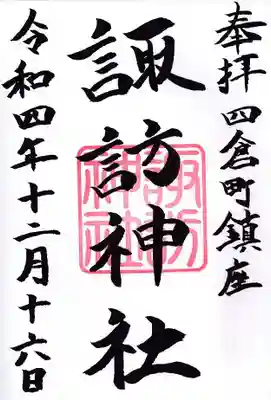 奉拝 四倉町鎮座
諏訪神社
諏訪神社
令和四年十二月十六日